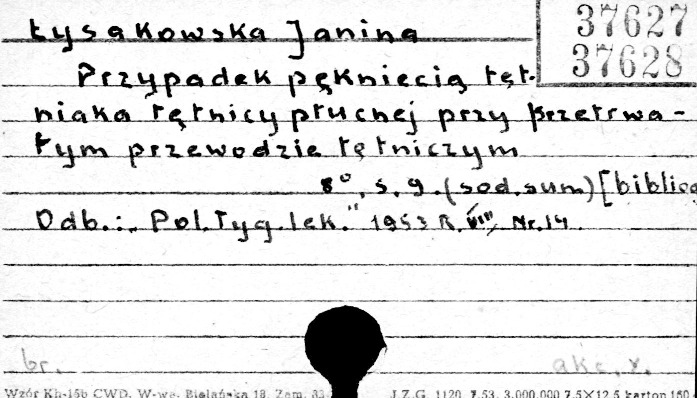 Łysakowska Janina
37627
37628
Przypadek pęknięcia tęt-
niaka tętnicy płucnej przy przetrwa-
łym przewodzie tętniczym
8°, s. 9. (sod. sum) [bibliog
Odb.: „Pol. Tyg. lek." 1953 R. VIII, Nr. 14.
br.
akc. r.
Wzór Kh-15b CWD. W-wa, Bielańska 18. Zam. J.Z.G. 1120 7.53. 3.000.000 7,5×12,5 karton 150